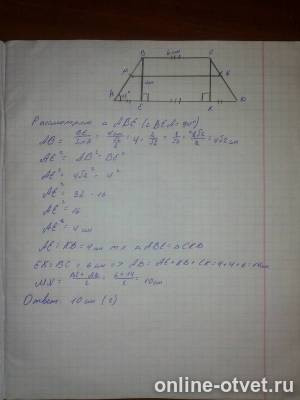 B 6см C
M N
4см
A 45° E K D
Рассмотрим △ ABE (∠BEA=90°)
AB = BE/sinA = 4см/(√2/2) = 4 · 2/√2 = 8/√2 = 8√2/2 = 4√2 см
AE² = AB² - BE²
AE² = 4√2² - 4²
AE² = 32 - 16
AE² = 16
AE = 4 см
AE = KD = 4см т.к △ABE = △CKD
EK = BC = 6см => AD = AE + KD + EK = 4+4+6 = 14см
MN = (BC+AD)/2 = (6+14)/2 = 10см
Ответ: 10см
online-otvet.ru